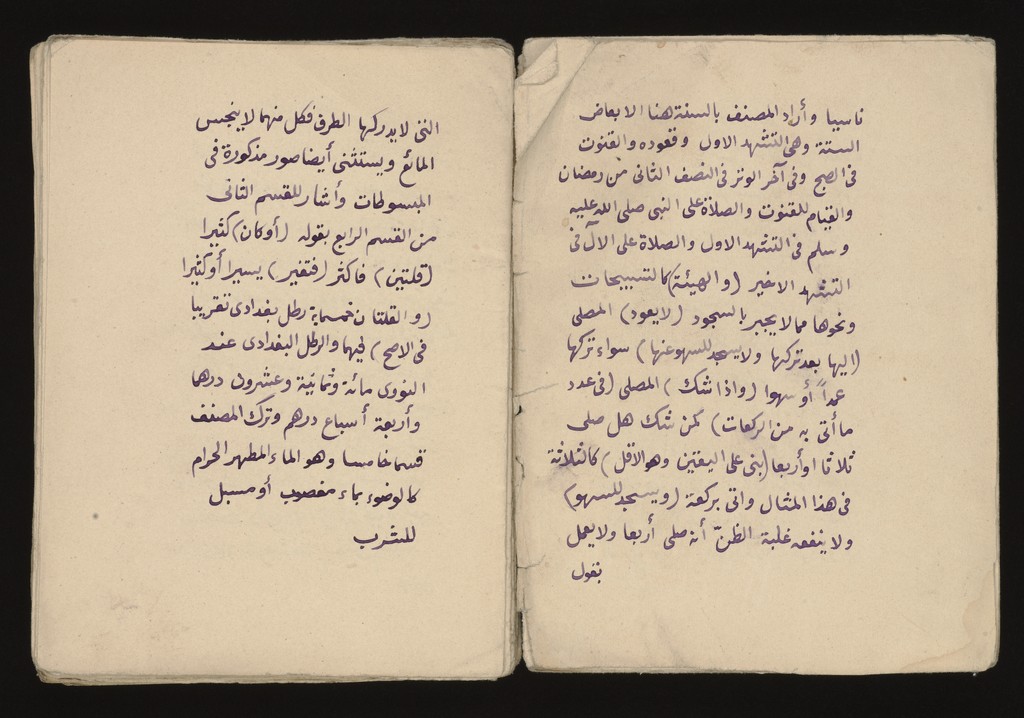 ناسيا وأراد المصنف بالسنة هنا الابعاض
الستة وهي التشهد الاول وقعوده والقنوت
في الصبح وفي آخر الوتر في النصف الثاني من رمضان
والقيام للقنوت والصلاة على النبي صلى الله عليه
وسلم في التشهد الاول والصلاة على الآل في
التشهد الاخير (والهيئة) كالتسبيحات
ونحوها مما لا يجبر بالسجود (لا يعود) المصلي
(اليها بعد تركها ولا يسجد للسهو عنها) سواء تركها
عمداً أو سهوا (واذا شك) المصلي (في عدد
ما أتى به من الركعات) كمن شك هل صلى
ثلاثا او أربعا (بنى على اليقين وهو الاقل) كالثلاثة
في هذا المثال واتى بركعة (ويسجد للسهو)
ولا ينفعه غلبة الظنّ أنه صلى أربعا ولا يعمل
بقول
التي لا يدركها الطرف فكل منهما لا ينجس
المائع ويستثنى أيضا صور مذكورة في
المبسوطات وأشار للقسم الثاني
من القسم الرابع بقوله (أو كان) كثيرا
(قلتين) فاكثر (فتغير) يسيرا أو كثيرا
(والقلتان خمسماية رطل بغدادى تقريبا
في الاصح) فيهما والرطل البغدادى عند
النووى مائة وثمانية وعشرون درهما
وأربعة أسباع درهم وترك المصنف
قسما خامسا وهو الماء المطهر الحرام
كالوضوء بماء مغصوب أو مسبل
للشرب